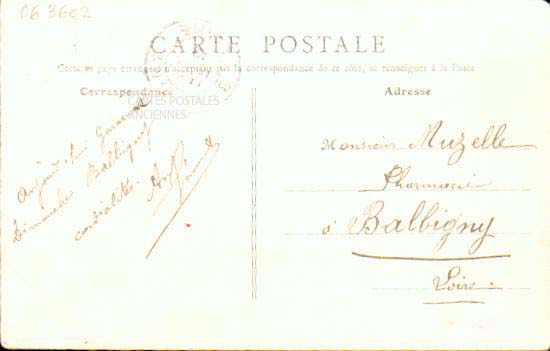 06 3602
CARTE POSTALE
Certains pays étrangers n'acceptant pas la correspondance de ce côté, se renseigner à la Poste
Correspondance
Adresse
CARTES POSTALES
ANCIENNES
Dimanche Balbigny
cordialités.
Monsieur Muzelle
Pharmacie
à Balbigny
Loire.